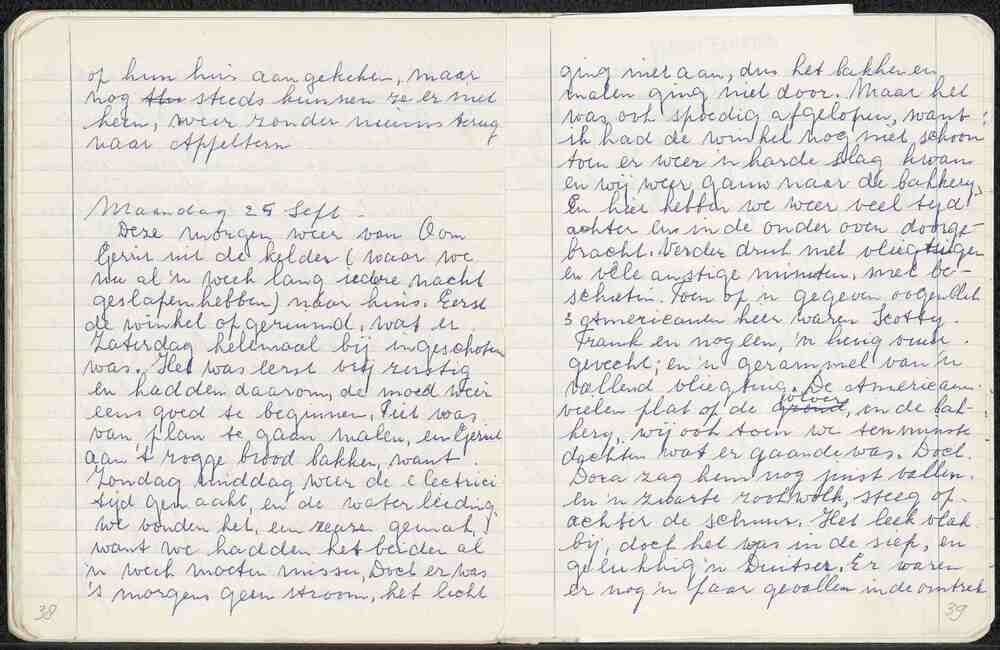 op hun huis aangekeken, maar
nog steeds kunnen ze er niet
heen, weer zonder nieuws terug
naar Appeltern
Maandag 25 Sept.
Deze morgen weer van Oom
Gerrit uit de kelder (waar we
nu al 'n week lang iedere nacht
geslapen hebben) naar huis. Eerst
de winkel opgeruimd, wat er
Zaterdag helemaal bij ingeschoten
was. Het was eerst vrij rustig
en hadden daarom, de moed weer
eens goed te beginnen, Piet was
van plan te gaan malen, en Gerrit
aan 't rogge brood bakken, want
Zondag middag weer de Electrici
tijd gemaakt, en de waterleiding.
We vonden het, een zegen gemak,
want we hadden het beiden al
'n week moeten missen, Doch er was
's morgens geen stroom, het licht
38
ging niet aan, dus het bakken en
malen ging niet door. Maar het
was ook spoedig afgelopen, want
ik had de winkel nog niet schoon
toen er weer 'n harde slag kwam
en wij weer gauw naar de bakkery,
En hier hebben we weer veel tyd
achter en in de onder oven doorge-
bracht. Verder druk met vliegtuigen
en vele angstige minuten, met be-
schieten. Toen op 'n gegeven oogenblik
3 Americanen hier waren Scotty
Frank en nog een, 'n hevig vuur
gevecht; en 'n gerammel van 'n
vallend vliegtuig. De Americanen
vielen plat op de vloer, in de bak-
kery, wij ook toen we tenminste
dachten wat er gaande was. Doch
Dora zag hem nog juist vallen.
en 'n zwarte rookwolk, steeg op
achter de schuur. Het leek vlak
bij, doch het was in de siep, en
gelukkig 'n Duitser. Er waren
er nog 'n paar gevallen in de omtrek
39